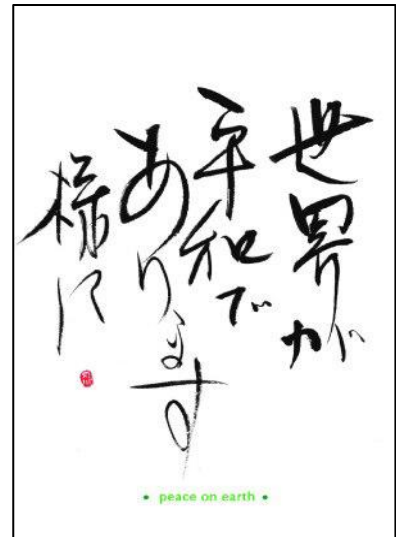 世界が
平和で
あります
様に
• peace on earth •